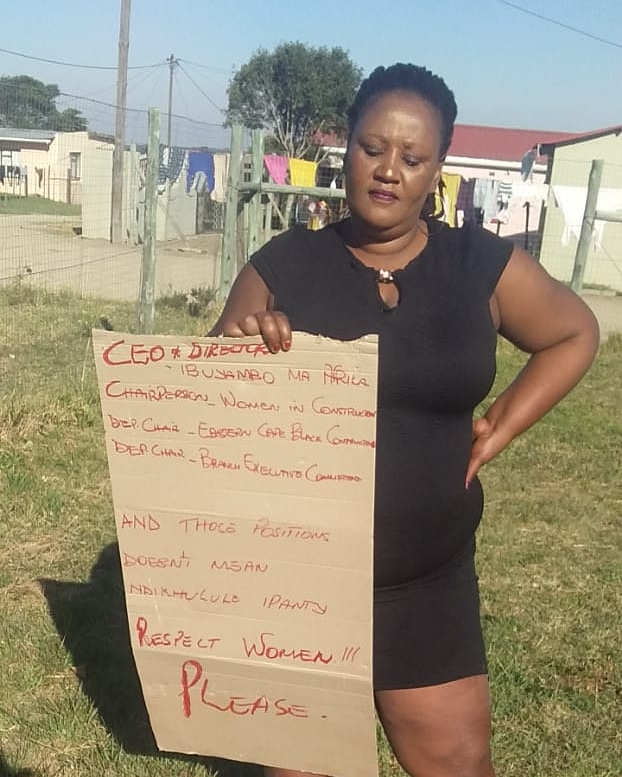 CEO & DIRECTOR
- IBUYAMBO MA AFRICA
CHAIRPERSON - WOMEN IN CONSTRUCTION
DEP. CHAIR - EASTERN CAPE BLACK CONTRACTORS
DEP. CHAIR - BRANCH EXECUTIVE COMMITTEE
AND THOSE POSITIONS
DOESN'T MEAN
NDIKHULULE IPANTY
RESPECT WOMEN!!!
PLEASE.